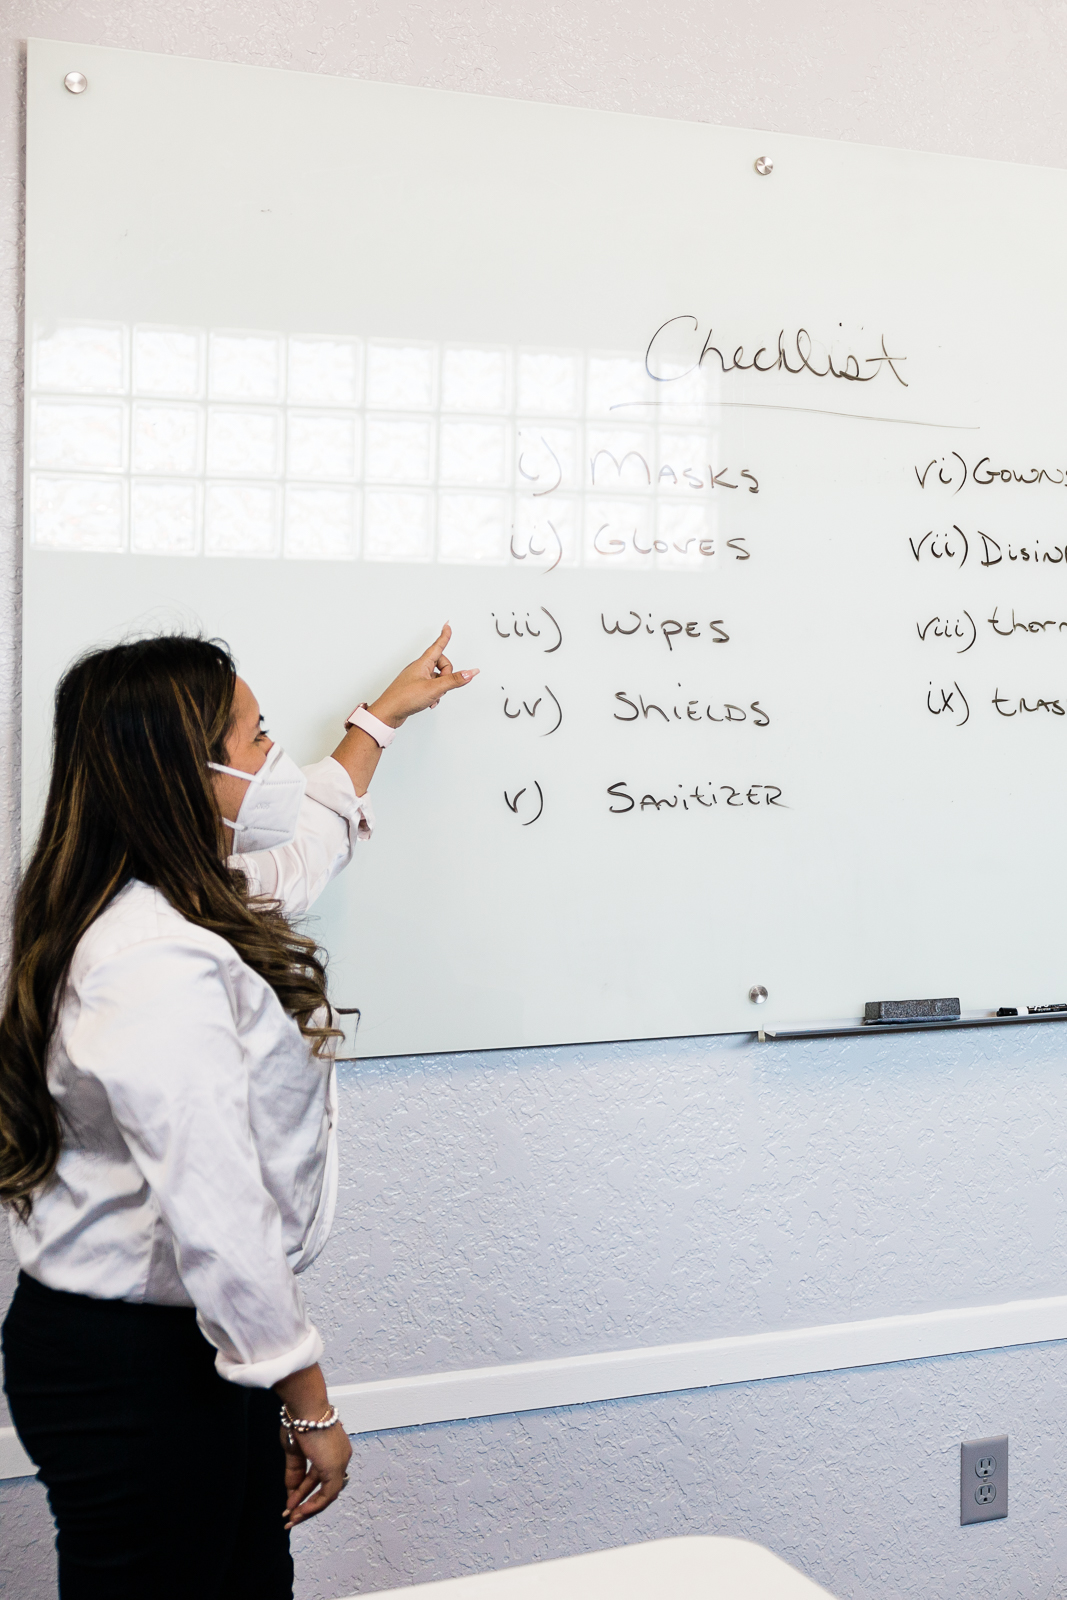 Checklist
i) MASKS
ii) GLOVES
iii) WIPES
iv) SHIELDS
v) SANITIZER
vi) GOWNS
vii)
viii)
ix)